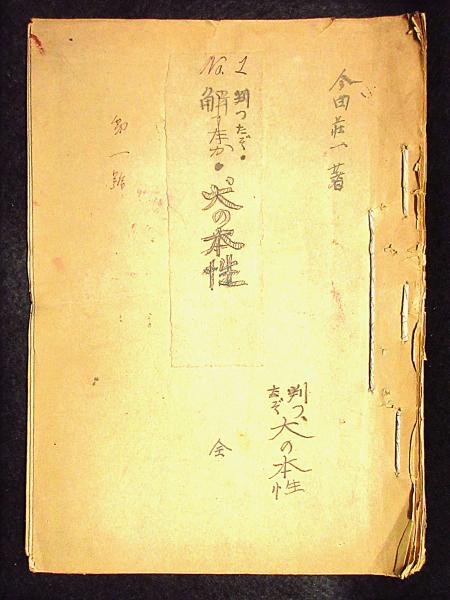 今田荘一著
No. 1
判つたぞ・
解つたか・
犬の本性
第一號
判つ
たぞ
犬の本性
全